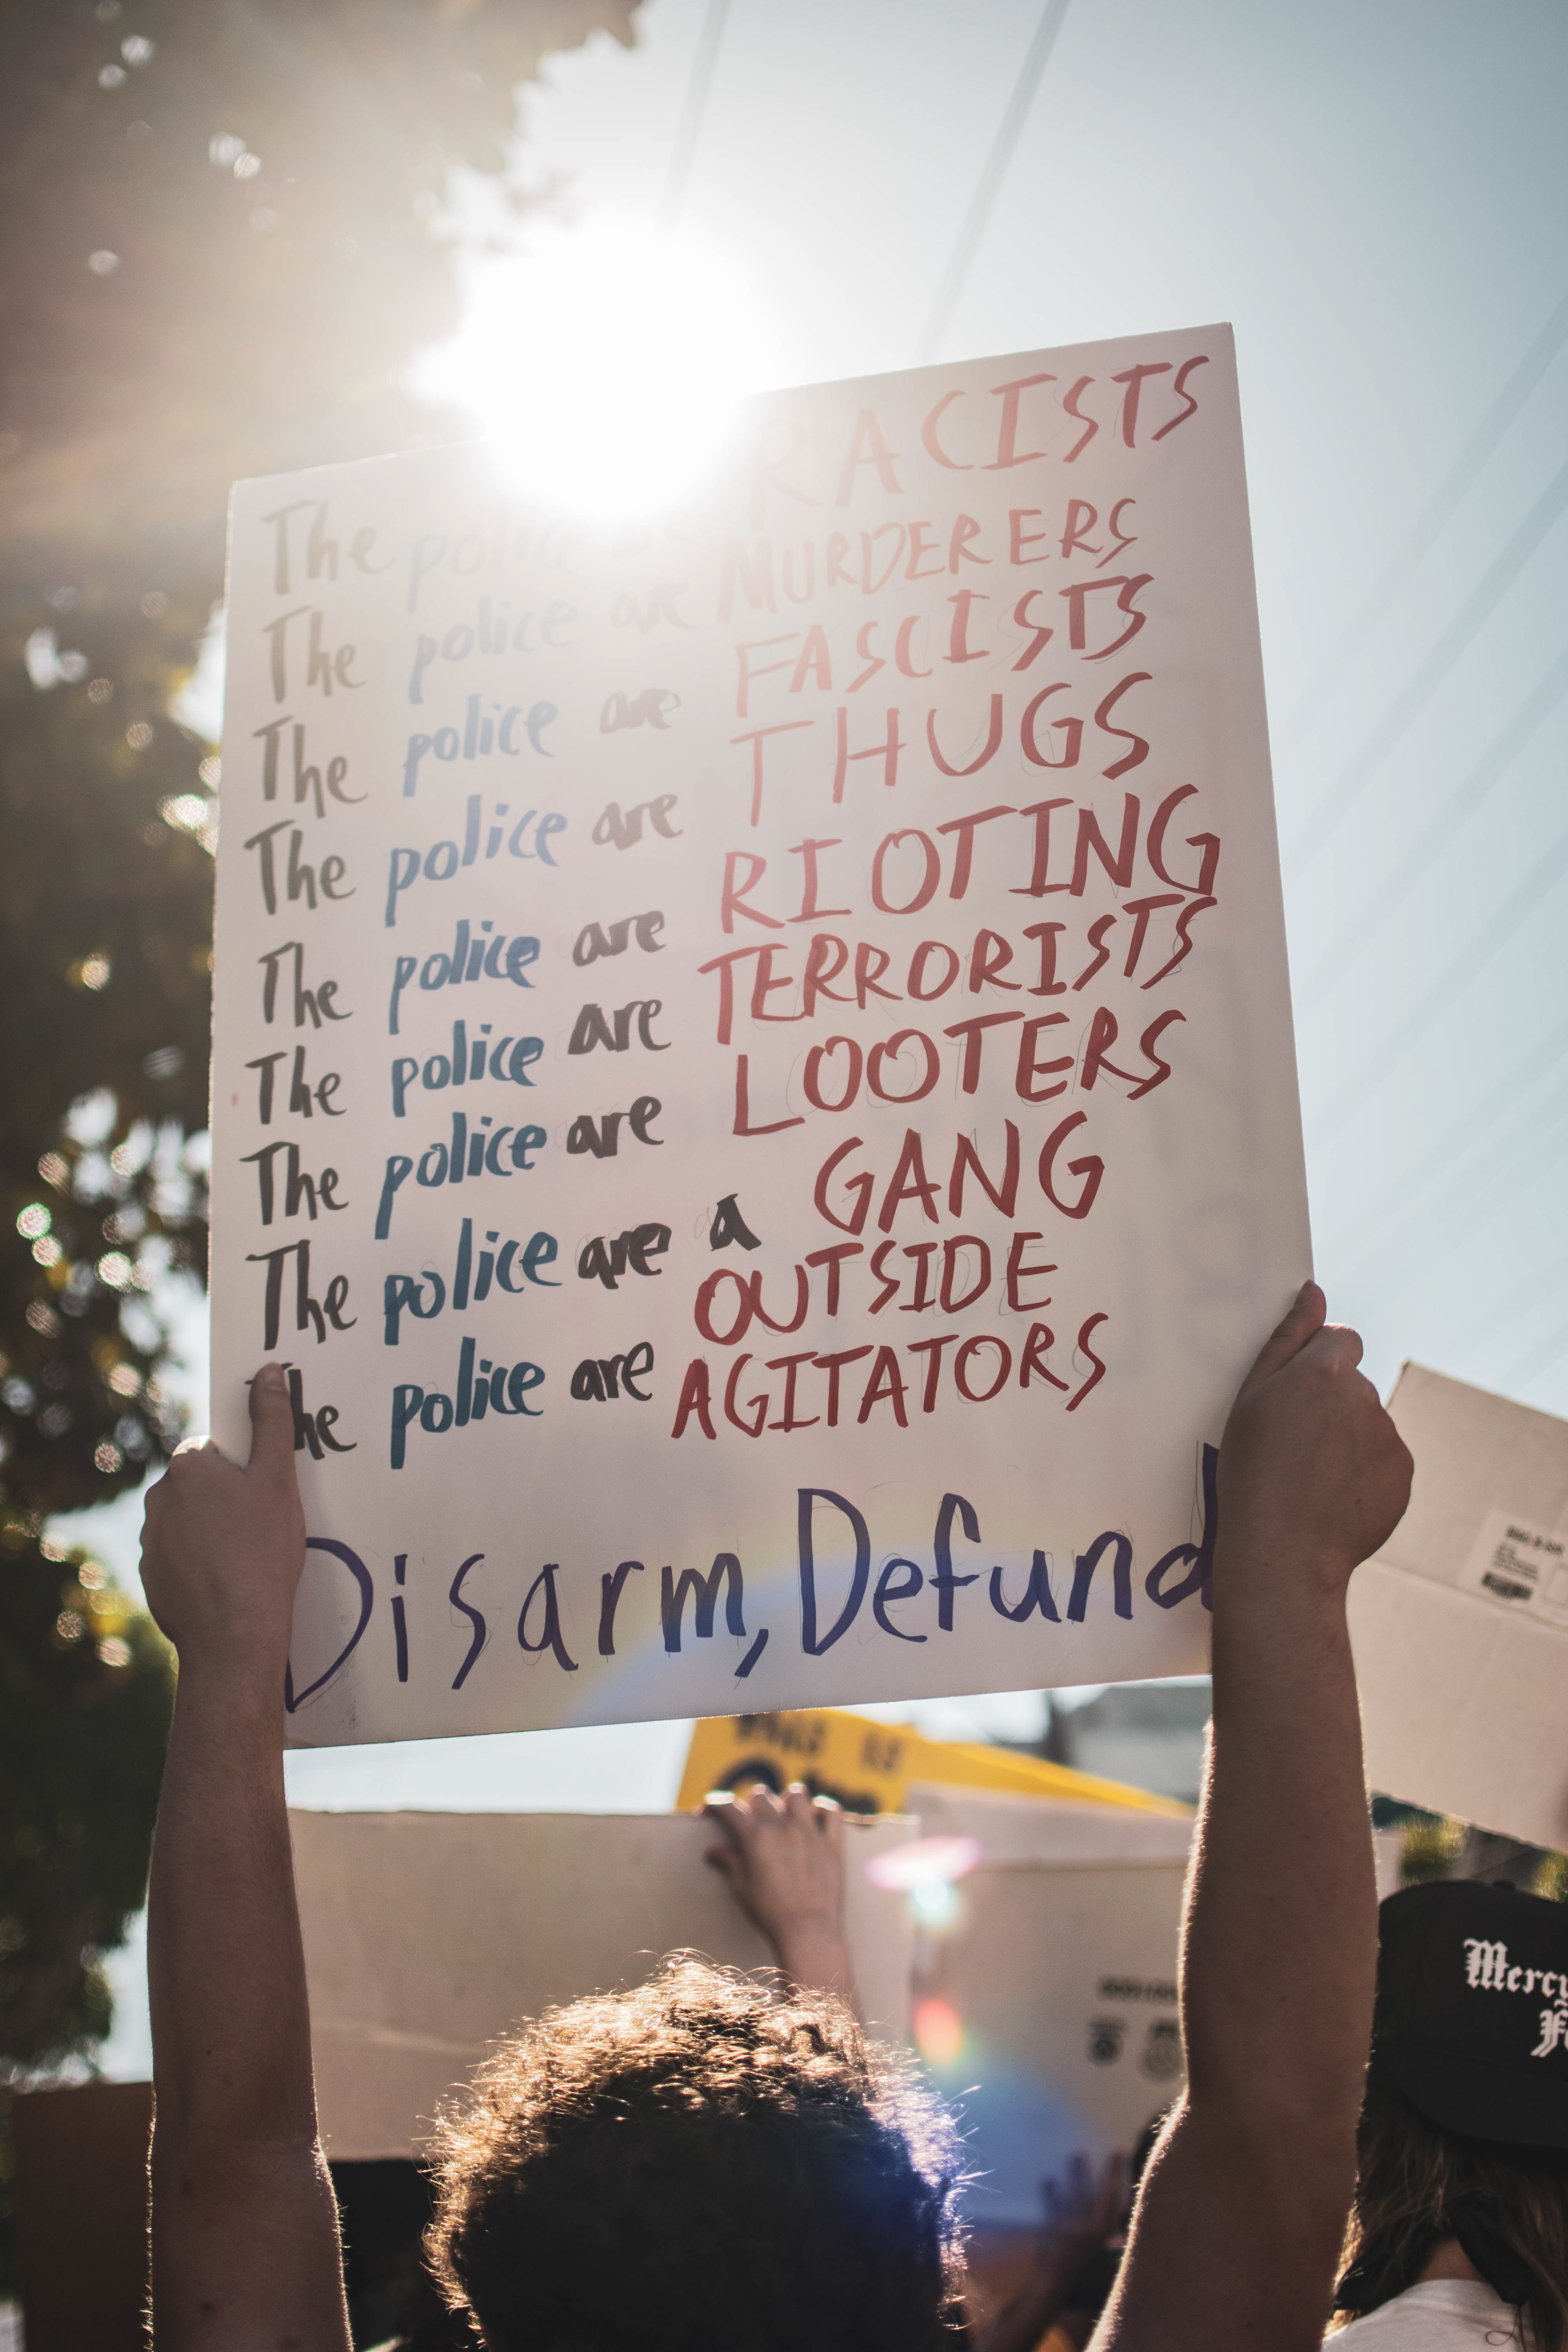 The police are RACISTS
The police are MURDERERS
The police are FASCISTS
The police are THUGS
The police are RIOTING
The police are TERRORISTS
The police are LOOTERS
The police are a GANG
The police are OUTSIDE
AGITATORS
Disarm, Defund
Mercy